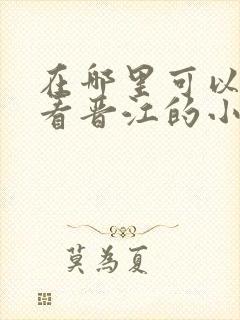 在哪里可以
看晋江的小
莫為夏